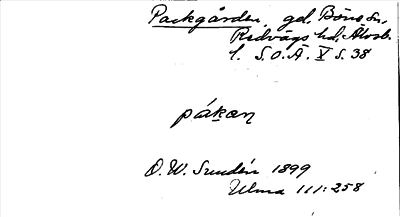 Packgården, gd, Böne sn,
Redvägs hd, Älvsb.
l. S.O.Ä. V s. 38
påkan
O. W. Sundén 1899
Ulma 111:258